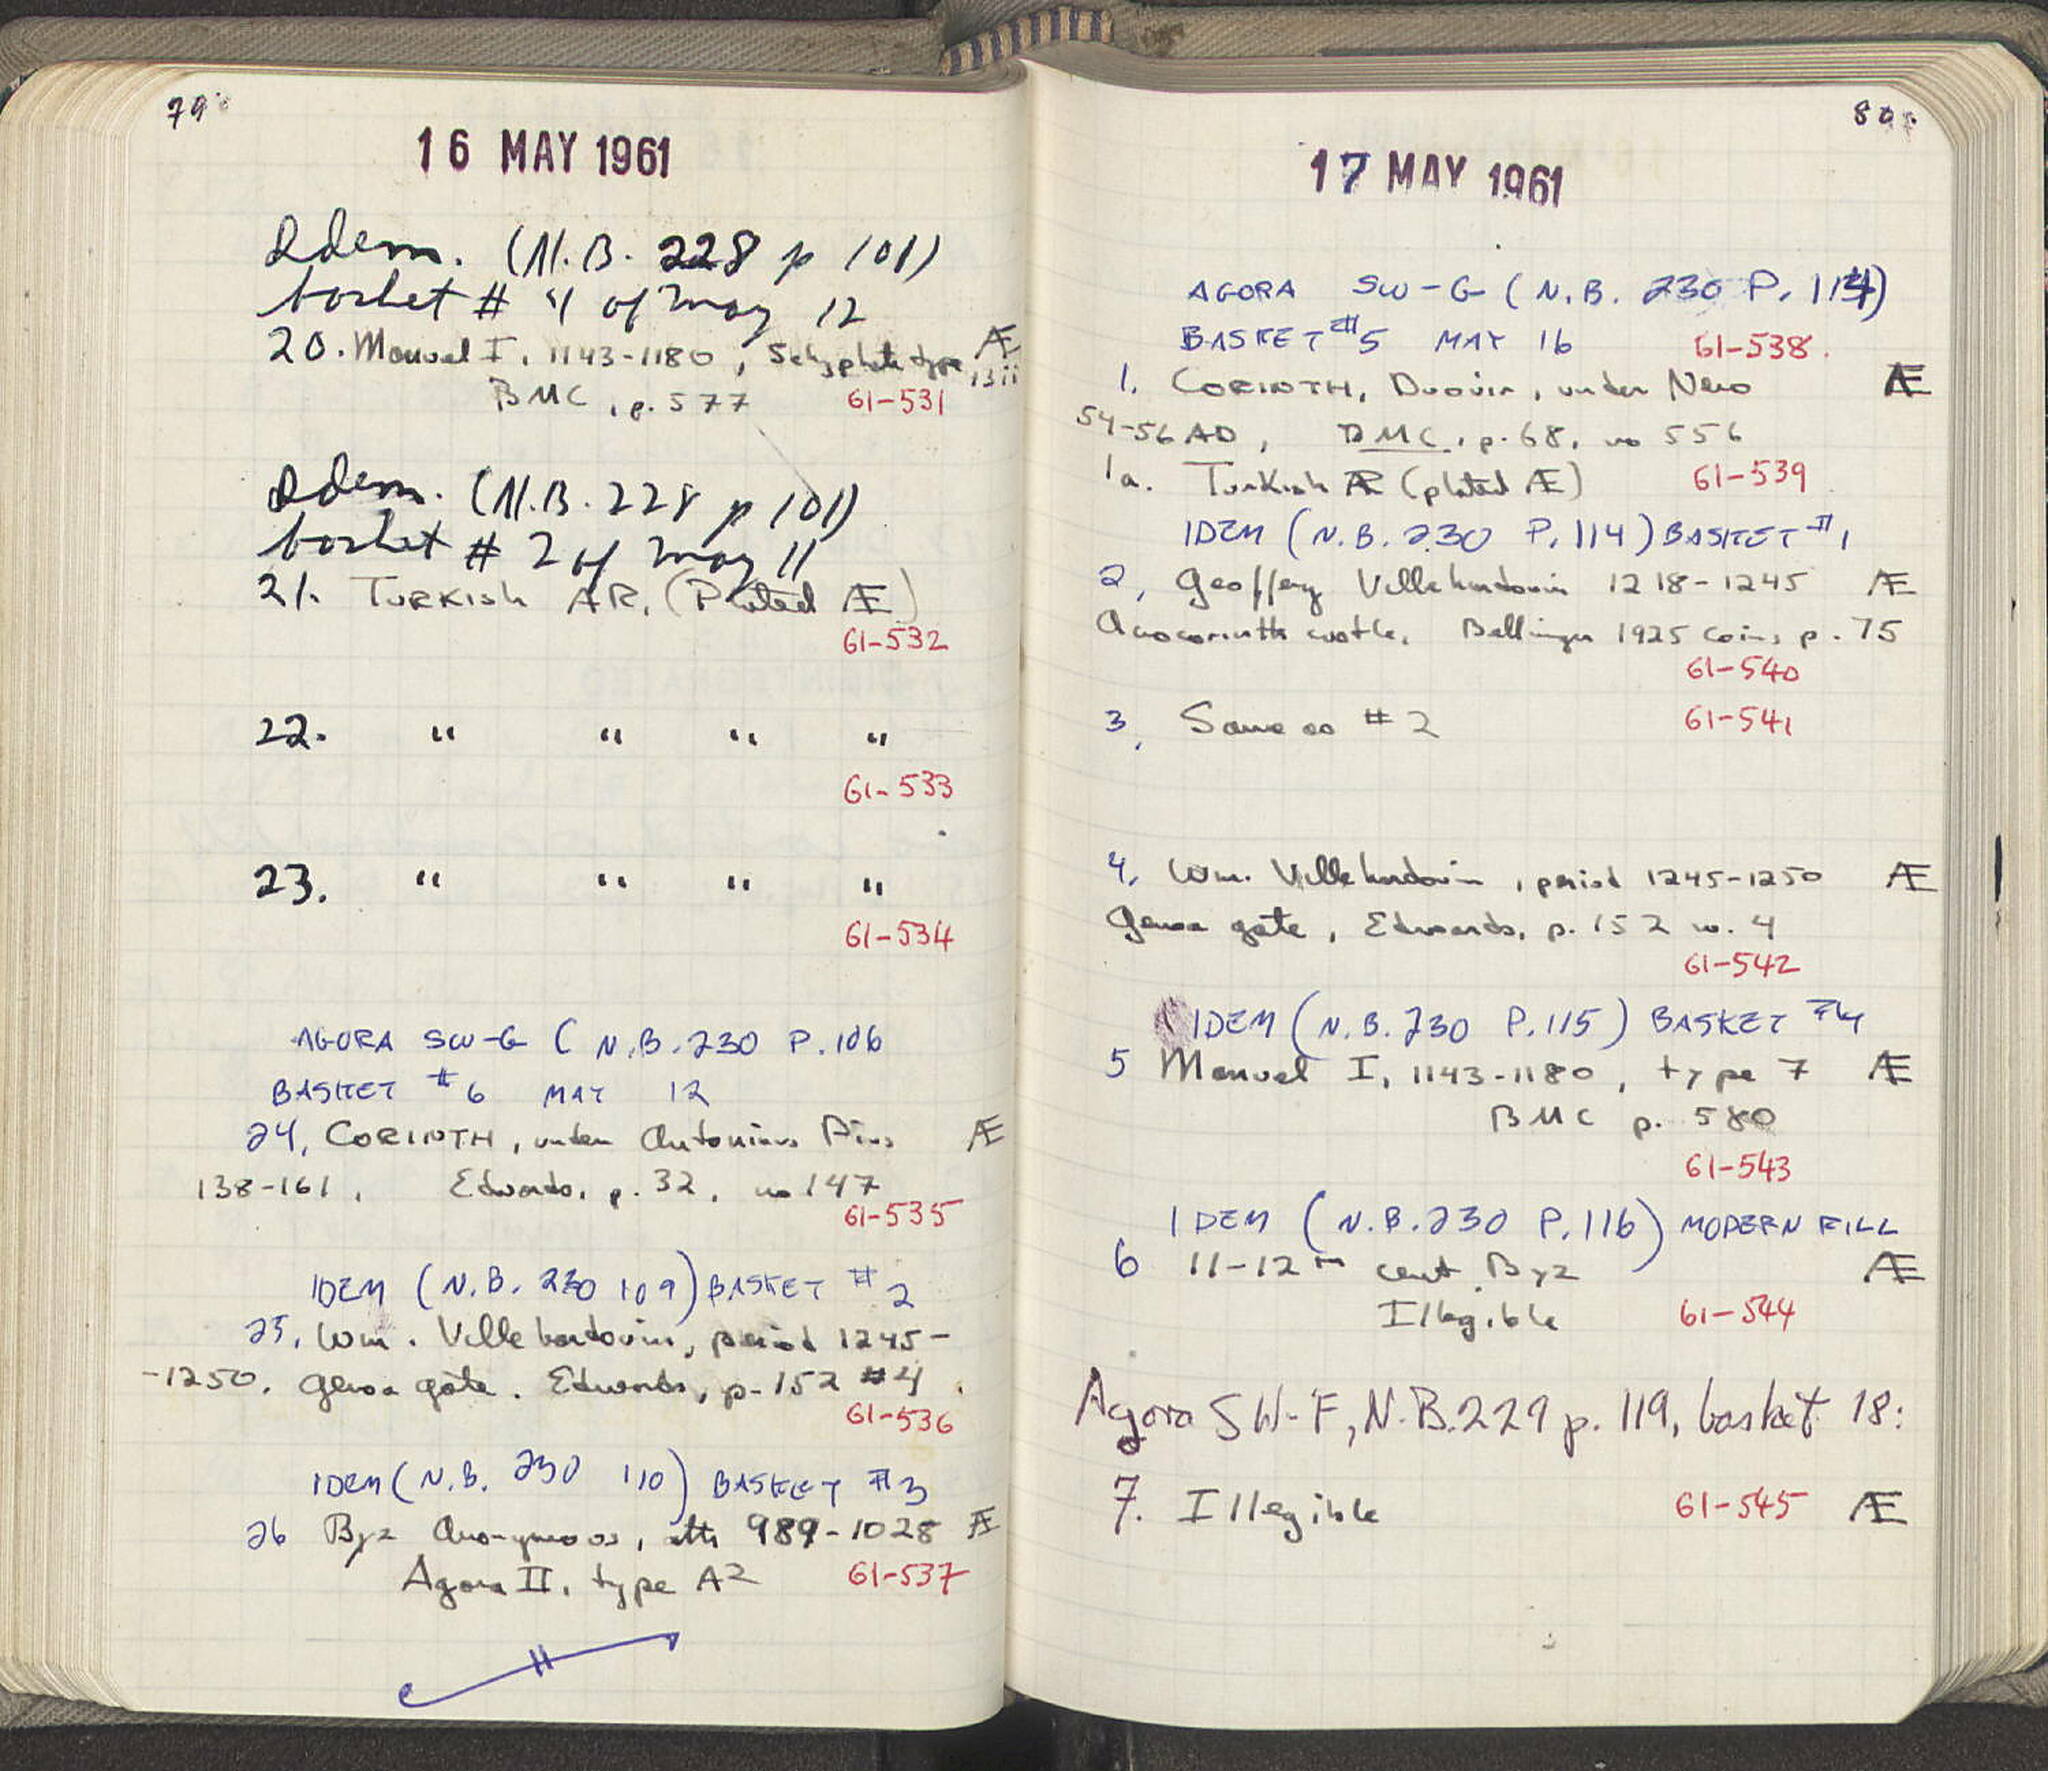 79
16 MAY 1961
Idem. (N.B. 228 p 101)
basket # 4 of may 12
20. Manuel I, 1143-1180, Scyphate type Æ
13ii
BMC, p. 577 61-531
Idem. (N.B. 228 p 101)
basket # 2 of may 11
21. Turkish AR, (Plated Æ)
61-532
22. " " " "
61-533
23. " " " "
61-534
AGORA SW-G (N.B. 230 P. 106
BASKET #6 MAY 12
24, CORINTH, under Antoninus Pius Æ
138-161, Edwards, p. 32, no 147
61-535
IDEM (N.B. 230 109) BASKET #2
25, Wm. Villehardouin, period 1245-
-1250. Genoa gate. Edwards, p. 152 #4
61-536
IDEM (N.B. 230 110) BASKET #3
26 Byz Anonymous, attr 989-1028 Æ
Agora II, type A2 61-537
80
17 MAY 1961
AGORA SW-G (N.B. 230 P. 114)
BASKET #5 MAY 16 61-538
1. CORINTH, Duovir, under Nero Æ
54-56 AD, BMC, p. 68, no 556
1a. Turkish AR (plated Æ) 61-539
IDEM (N.B. 230 P. 114) BASKET #1
2, Geoffery Villehardouin 1218-1245 Æ
Acrocorinth castle, Bellinger 1925 coins p. 75
61-540
3, Same as #2 61-541
4, Wm. Villehardouin, period 1245-1250 Æ
Genoa gate, Edwards, p. 152 no. 4
61-542
IDEM (N.B. 230 P. 115) BASKET #4
5 Manuel I, 1143-1180, type 7 Æ
BMC p. 580
61-543
IDEM (N.B. 230 P. 116) MODERN FILL
6 11-12th cent Byz Æ
Illegible 61-544
Agora SW-F, N.B. 229 p. 119, basket 18:
7. Illegible 61-545 Æ